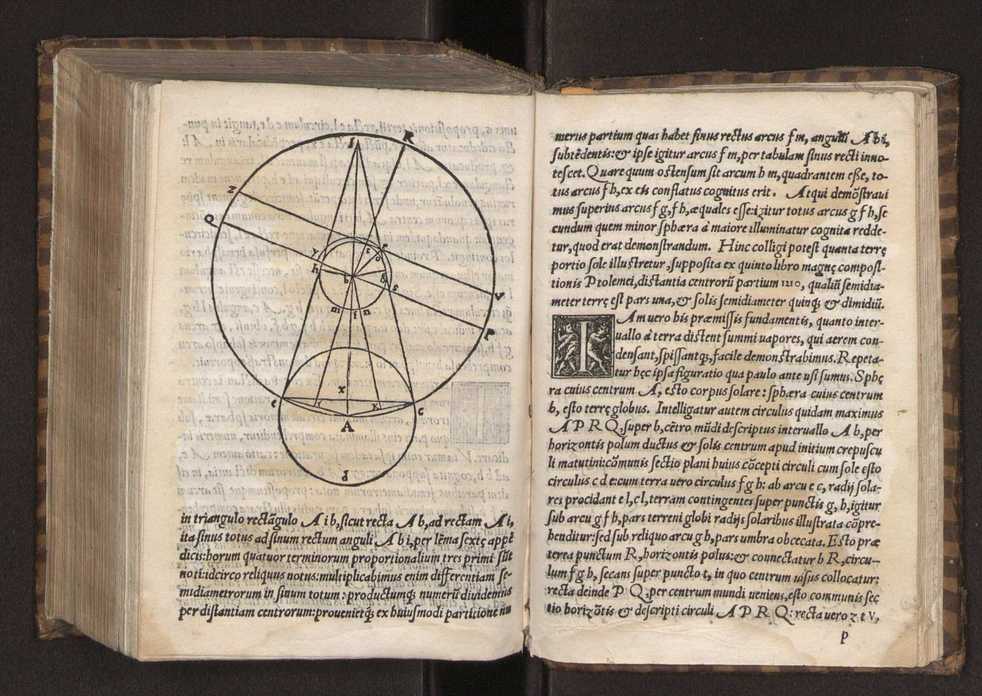 in triangulo rectãgulo A i b, sicut recta A b, ad rectam A i,
ita sinus totus ad sinum rectum anguli, A b i, per lẽma sextę appẽ
dicis: horum quatuor terminorum proportionalium tres primi sũt
noti: idcirco reliquus notus: multiplicabimus enim differentiam se-
midiametrorum in sinum totum: productumq; numerũ diuidemus
per distantiam centrorum: prouenietq; ex huiusmodi partitione nu
merus partium quas habet sinus rectus arcus f m, angulũ A b i,
subtẽdentis: & ipse igitur arcus f m, per tabulam sinus recti inno-
tescet. Quare quum ostensum sit arcum h m, quadrantem esse, to-
tus arcus f h, ex eis conflatus cognitus erit. Atqui demõstraui
mus superius arcus f g, f h, æquales esse: igitur totus arcus g f h, se
cundum quem minor sphæra á maiore illuminatur cognita redde-
tur, quod erat demonstrandum. Hinc colligi potest quanta terrę
portio sole illustretur, supposita ex quinto libro magnę composi-
tionis Ptolemei, distantia centrorũ partium 1210, qualiũ semidia-
meter terrę est pars una, & solis semidiameter quinq; & dimidiũ.
IAm uero his præmissis fundamentis, quanto inter-
uallo á terra distent summi uapores, qui aerem con-
densant, spissantq;, facile demonstrabimus. Repeta-
tur hęc ipsa figuratio qua paulo ante usi sumus. Sphę
ra cuius centrum A, esto corpus solare: sphæra cuius centrum
b, esto terrę globus. Intelligatur autem circulus quidam maximus
A P R Q, super b, cẽtro mũdi descriptus interuallo A b, per
horizontis polum ductus & solis centrum apud initium crepuscu
li matutini: cõmunis sectio plani huius cõcepti circuli cum sole esto
circulus c d e: cum terra uero circulus f g h: ab arcu e c, radij sola-
res procidant e l, c l, terram contingentes super punctis g, h, igitur
sub arcu g f h, pars terreni globi radijs solaribus illustrata cõpre-
henditur: sed sub reliquo arcu g h, pars umbra obcecata. Esto præ
terea punctum R, horizontis polus: & connectatur b R, circu-
lum f g h, secans super puncto t, in quo centrum uisus collocatur:
recta deinde P Q, per centrum mundi ueniens, esto communis sec
tio horizõtis & descripti circuli A P R Q: recta uero z t V,
P
l
R
Z
Q
h
b
g
m
f
n
V
P
x
e
c
A
d